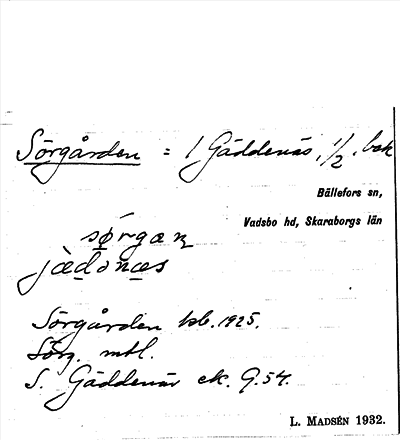 Sörgården = 1 Gäddenäs, 1/2, bek
Bällefors sn,
Vadsbo hd, Skaraborgs län
sørgaɳ
jæ̀donæs
Sörgården kb. 1925.
Sörg. mtl.
S. Gäddenäs ek. G. 54.
L. MADSÉN 1932.